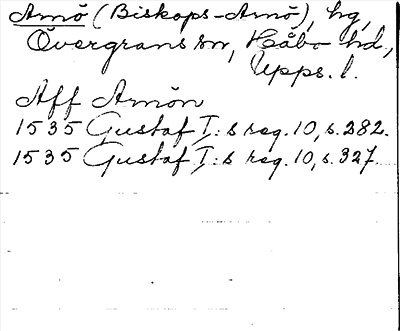 Arnö (Biskops-Arnö), hg,
Övergrans sn, Håbo hd,
Upps. l.
Aff Arnön
1535 Gustaf I:s reg. 10, s. 282.
1535 Gustaf I:s reg. 10, s. 327.